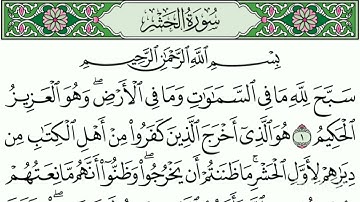 سُورَةُ الْحَشْرِ
بِسْمِ اللَّهِ الرَّحْمَٰنِ الرَّحِيمِ
سَبَّحَ لِلَّهِ مَا فِي السَّمَاوَاتِ وَمَا فِي الْأَرْضِ ۖ وَهُوَ الْعَزِيزُ
الْحَكِيمُ ١ هُوَ الَّذِي أَخْرَجَ الَّذِينَ كَفَرُوا مِنْ أَهْلِ الْكِتَابِ مِن
دِيَارِهِمْ لِأَوَّلِ الْحَشْرِ ۚ مَا ظَنَنتُمْ أَن يَخْرُجُوا ۖ وَظَنُّوا أَنَّهُم مَّانِعَتُهُمْ